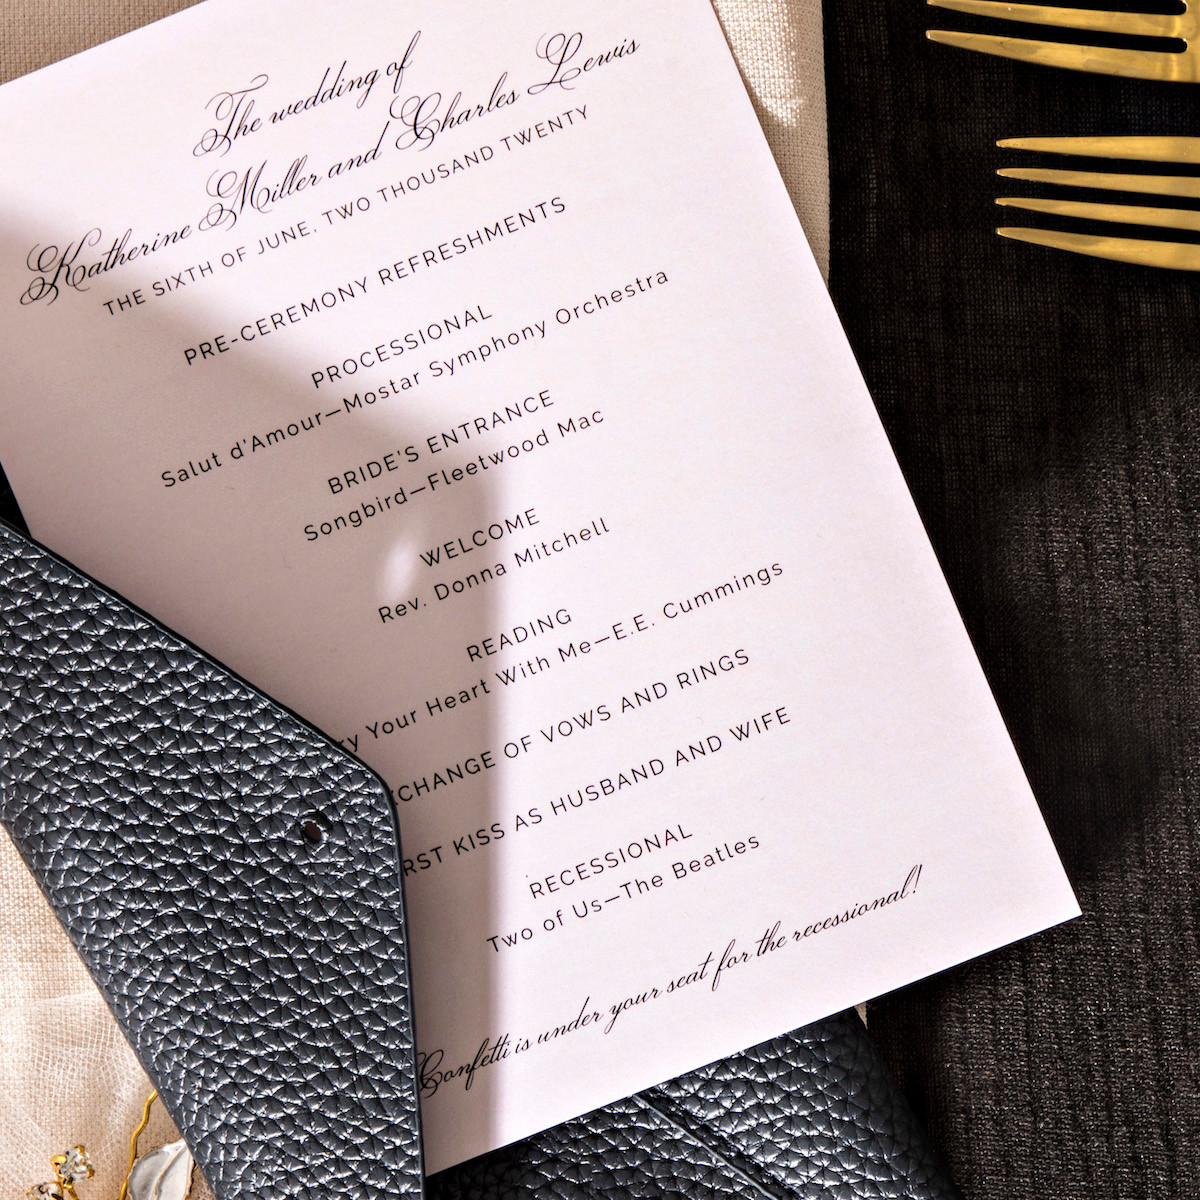 The wedding of
Katherine Miller and Charles Lewis
THE SIXTH OF JUNE, TWO THOUSAND TWENTY
PRE-CEREMONY REFRESHMENTS
PROCESSIONAL
Salut d'Amour—Mostar Symphony Orchestra
BRIDE'S ENTRANCE
Songbird—Fleetwood Mac
WELCOME
Rev. Donna Mitchell
READING
Your Heart With Me—E.E. Cummings
OF VOWS AND RINGS
KISS AS HUSBAND AND WIFE
RECESSIONAL
Two of Us—The Beatles
Confetti is under your seat for the recessional!